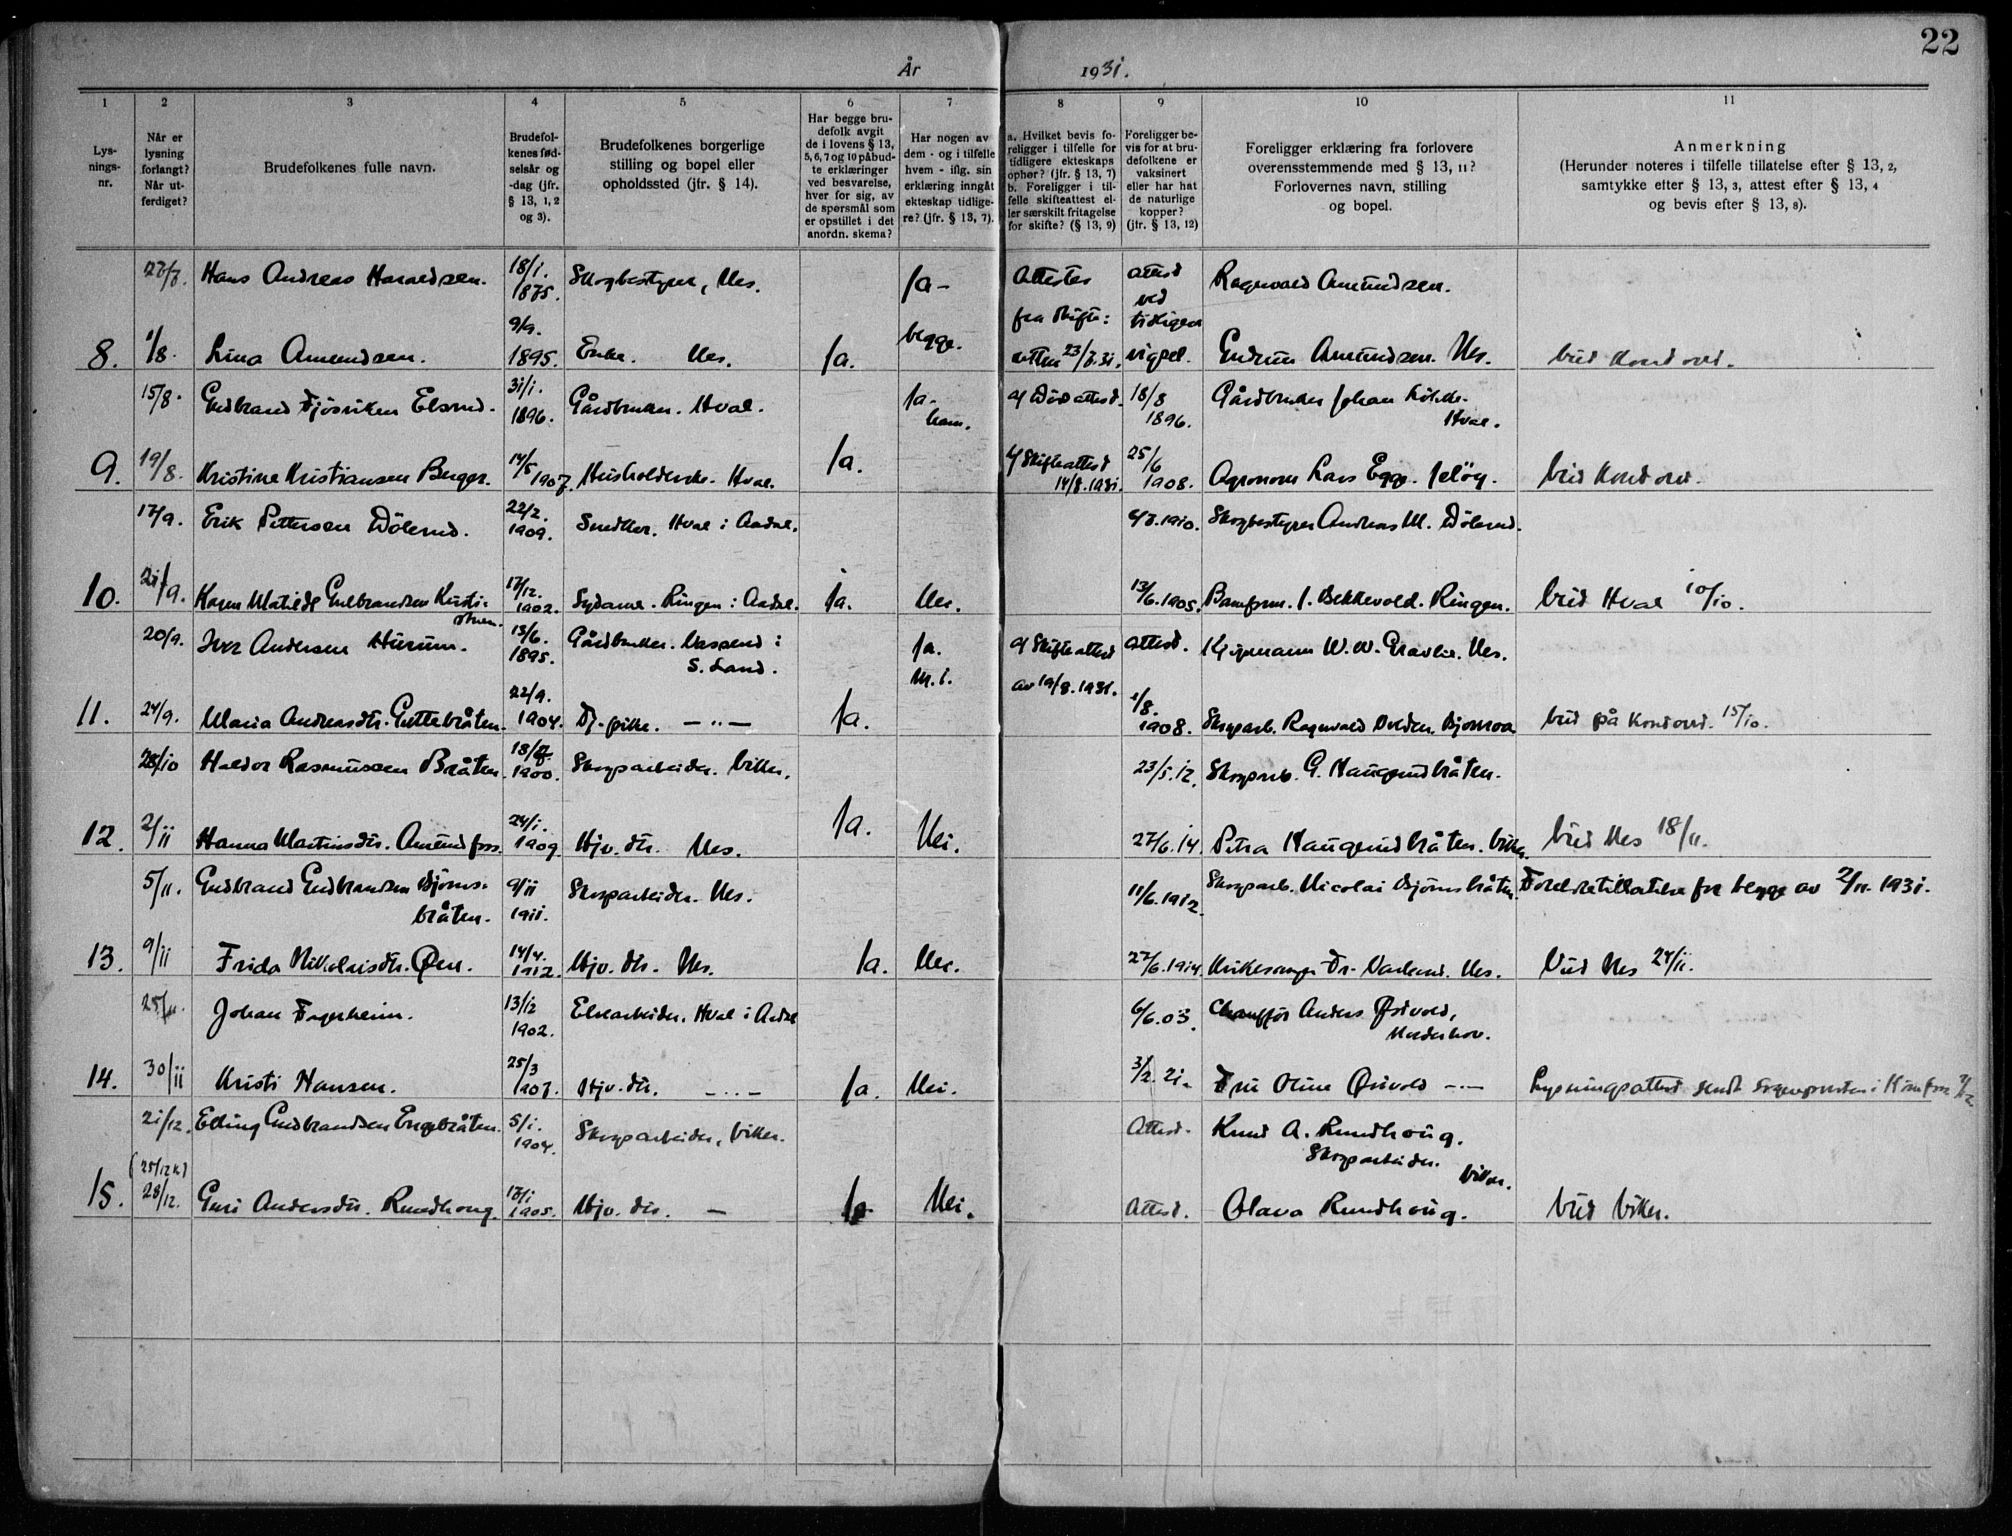 22
År 1931.
1 2 3 4 5 6 7 8 9 10 11
Lys-
nings-
nr.
Når er
lysning
forlangt?
Når ut-
ferdiget?
Brudefolkenes fulle navn.
Brudefol-
kenes fød-
selsår og
-dag (jfr.
§ 13, 1, 2
og 3).
Brudefolkenes borgerlige
stilling og bopel eller
opholdssted (jfr. § 14).
Har begge bru-
defolk avgit
de i lovens § 13,
5, 6, 7 og 10 påbud-
te erklæringer
ved besvarelse,
hver for sig, av
de spørsmål som
er opstillet i det
anordn. skema?
Har nogen av
dem - og i tilfelle
hvem - iflg. sin
erklæring inngåt
ekteskap tidlige-
re? (jfr. § 13, 7).
a. Hvilket bevis fo-
religger i tilfelle for
tidligere ekteskaps
ophør? (jfr. § 13, 7)
b. Foreligger i til-
felle skifteattest el-
ler særskilt fritagelse
for skifte? (§ 13, 9)
Foreligger be-
vis for at bru-
defolkene er
vaksinert
eller har hat
de naturlige
kopper?
(jfr. § 13, 12)
Foreligger erklæring fra forlovere
overensstemmende med § 13, 11?
Forlovernes navn, stilling
og bopel.
Anmerkning
(Herunder noteres i tilfelle tillatelse efter § 13, 2,
samtykke efter § 13, 3, attest efter § 13, 4
og bevis efter § 13, 8).
27/7. Hans Andreas Haraldsen. 18/1. 1875. Skogbestyrer, Nes. Ja - Attester attest Ragnvald Amundsen.
fra skifte: ved tidligere
8. 1/8. Lina Amundsen. 9/9. 1895. Enke. Nes. Ja. begge. retten 23/7.31. vigsel. Gudrun Amundsen. Nes. Vied Hond ovd.
15/8. Gudbrand Fjøsviken Elsrud. 31/1. 1896. Gårdbruker. Hval. Ja. ham. a) Dødsattest. 18/8 1896. Gårdbruker Johan
Hval.
9. 19/8. Kristine Kristiansen Berger. 14/5 1907. Husholderske. Hval. Ja. b) Skifteattest 14/8.1931. 25/6 1908. Agronom Lars Egge. Jeløy.
17/9. Erik Pettersen Dølerud. 22/2. 1909. Snedker. Hval i Aadal. 4/7.1910. Skogbestyrer Andreas M. Dølerud.
10. 21/9. Karen Matilde Gulbrandsen Kristi-
17/12. 1902. Sydame. Ringen i Aadal. Ja. Nei. 13/6.1905. Banform. J. Bekkevold. Ringen. Vied Hval 10/10.
20/9. Iver Andersen Hurum. 13/6. 1895. Gårdbruker. i
S. Land. Ja. a) Skifteattest Attest. Kjøpmann W. W. Gravlie. Nes.
av 19/8.1931.
11. 24/9. Maria Andreasdtr. Guttebråten. 22/9. 1904. Tj. pike. — " — Ja. 1/8. 1908. Skogarb. Ragnvald Bjonroa Vied på 15/10.
28/10 Haldor Rasmussen Bråten. 18/ 1900. Skogsarbeider. Viker. 23/5.12. Skogsarb. G. Haugerudbråten.
12. 2/11 Hanna Martinsdtr. Amundfoss. 24/1. 1909. Hjv. dtr. Nes. Ja. Nei. 27/6.14. Petra Haugerudbråten. Viker. Vied Nes 18/11.
5/11. Gudbrand Gudbrandsen Bjørns-
bråten. 9/11 1911. Skogsarbeider. Nes. 11/6.1912. Skogsarb. Nicolai Bjørnsbråten. Foreldretillatelse for begge av 2/11. 1931.
13. 9/11 Frida Nikolaisdtr. Øen. 14/4. 1912. Hjv. dtr. Nes. Ja. Nei. 27/6.1914. Kirkesanger Nes. Vied Nes 24/11.
25/11. Johan Fagerheim. 13/12 1902. Elvearbeider. Hval i Aadal 6/6.03. Chauffør Anders Østvold,
14. 30/11 Kristi Hansen. 25/3 1907. Hjv. dtr. — " — Ja. Nei. 3/2.21. Fru Oline Østvold — " — Lysningsattest sendt sognepresten i
21/12. Edling Gudbrandsen Engebråten. 5/1. 1904. Skogsarbeider, Viker. Attest. Knud A. Rundhoug.
Skogsarbeider.
Viker.
15. (25/12 kl) 28/12. Guri Andersdtr. Rundhoug. 17/1 1905. Hjv. dtr. — Ja Nei. Attest. Olava Rundhoug. Vied Viker.